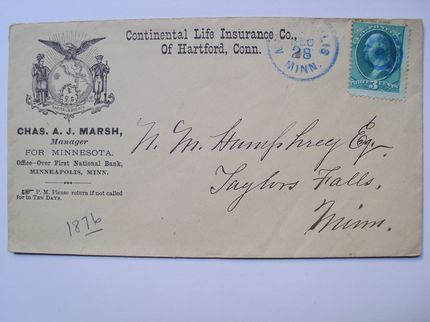 Continental Life Insurance Co.,
Of Hartford, Conn.
DEC
28
MINN.
CHAS. A. J. MARSH,
Manager
FOR MINNESOTA.
Office-Over First National Bank,
MINNEAPOLIS, MINN.
P. M. Please return if not called
for in TEN DAYS.
1876
N. M. Humphrey Esq.
Taylors Falls,
Minn.
3